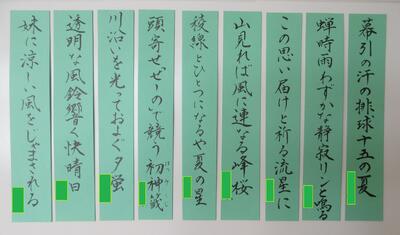 幕引の汗の排球十五の夏
蝉時雨わずかな静寂リンと鳴る
この思い届けと祈る流星に
山見れば風に連なる峰桜
稜線とひとつになるや夏の星
頭寄せせーので競う初神籤
はつみくじ
川沿いを光っておよぐ夕蛍
透明な風鈴響く快晴日
妹に涼しい風をじゃまされる